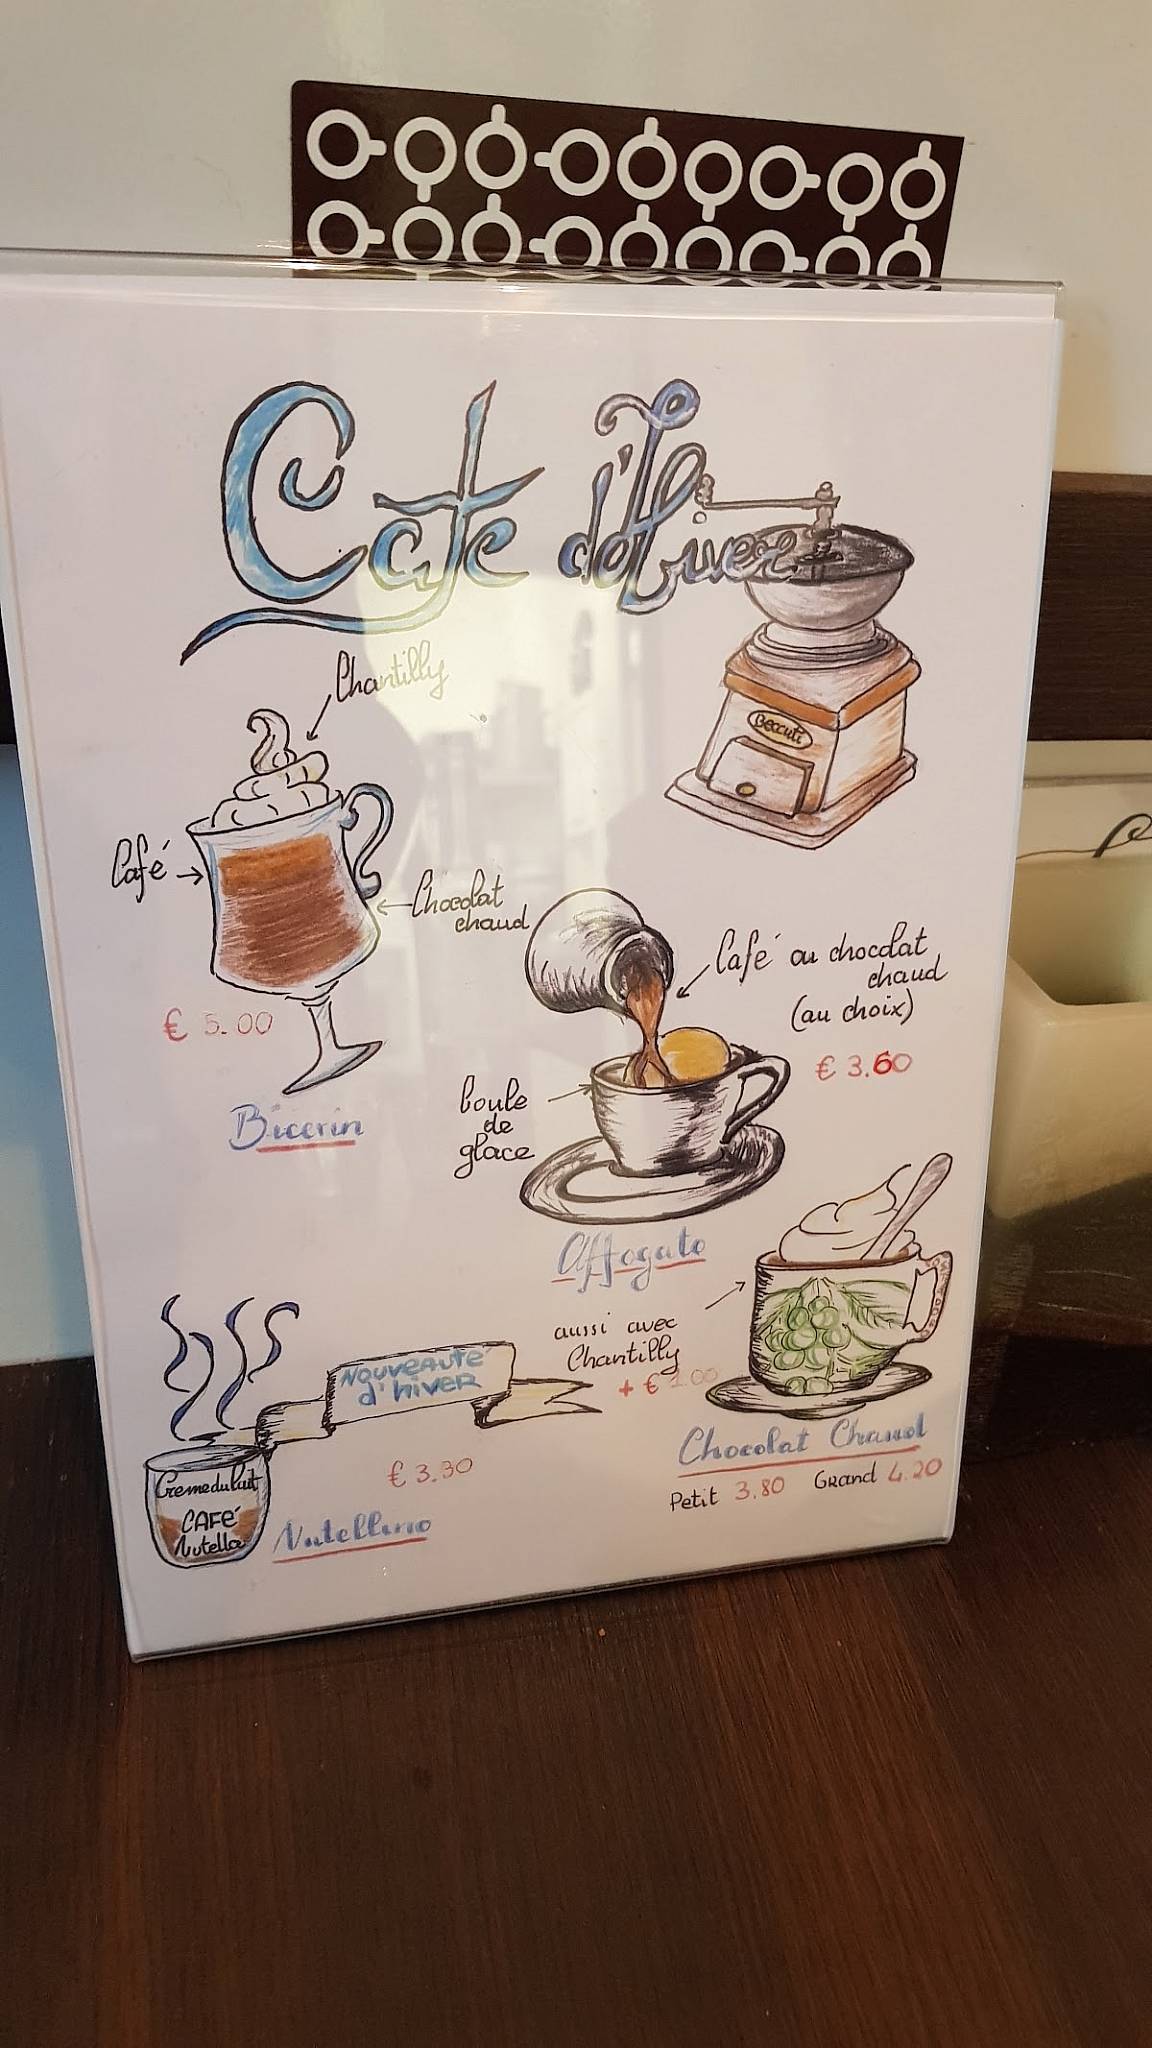 Café d'Hiver
Chantilly
Beccuti
Café
Chocolat
chaud
€ 5.00
Bicerin
Café ou chocolat
chaud
(au choix)
€ 3.60
boule
de
glace
Affogato
aussi avec
Chantilly
+ € 1.00
Chocolat Chaud
Petit 3.80 Grand 4.20
NOUVEAUTÉ
d'hiver
€ 3.30
Creme du lait
CAFÉ
Nutella
Nutellino